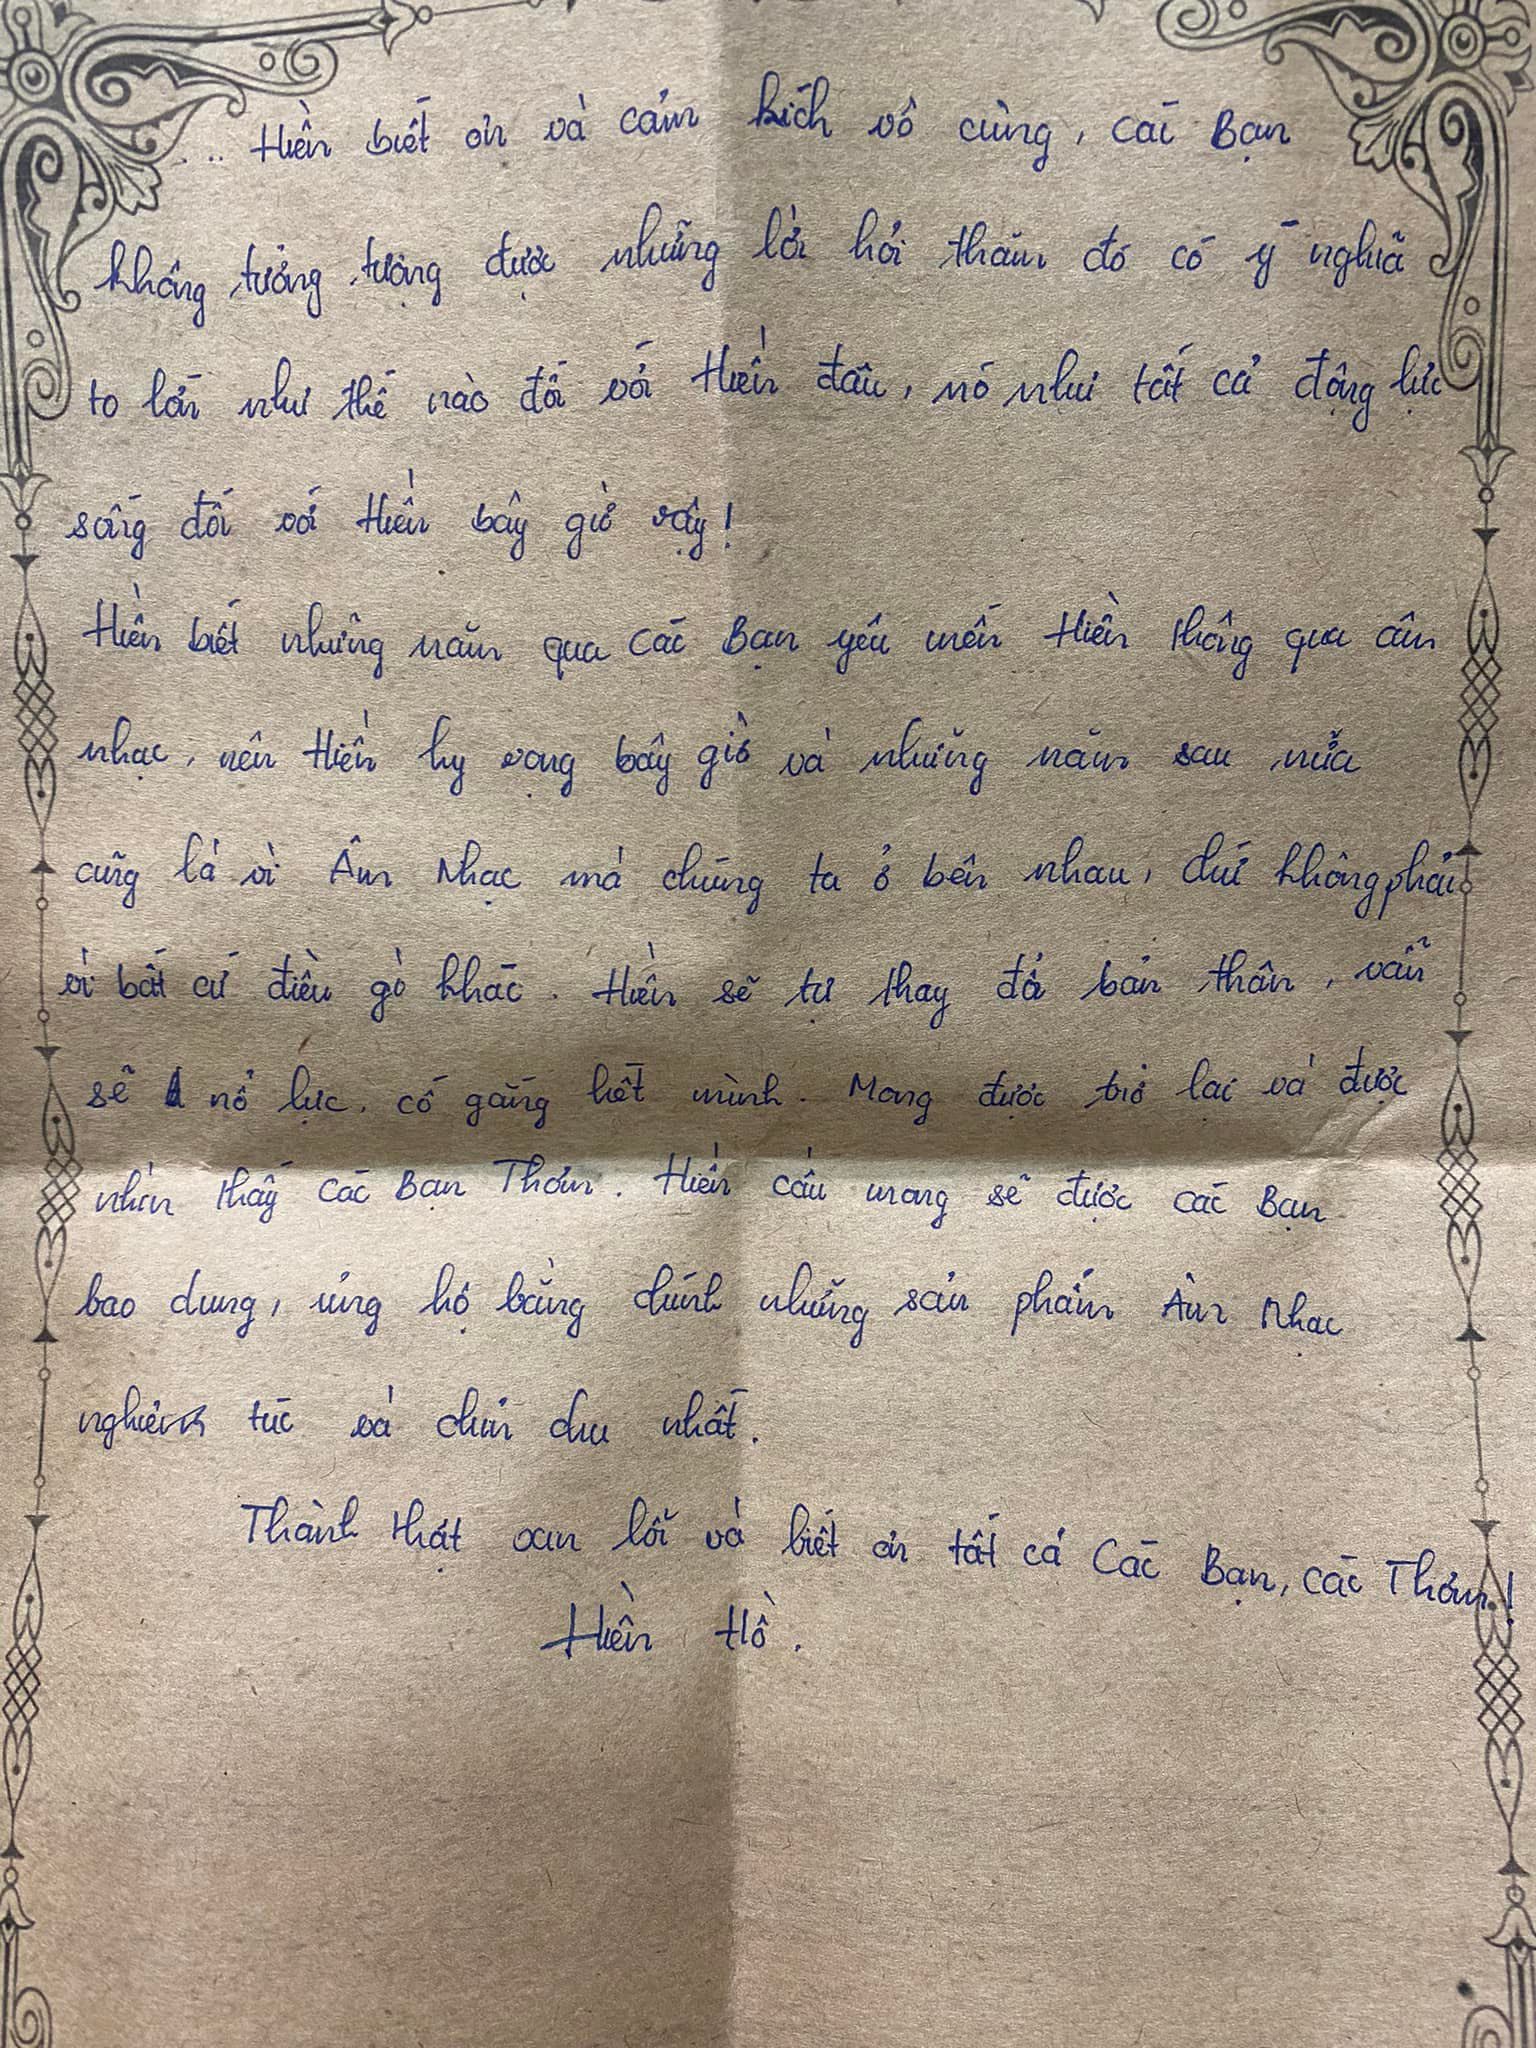 ... Hiền biết ơn và cảm kích vô cùng, các Bạn
không tưởng tượng được những lời hỏi thăm đó có ý nghĩa
to lớn như thế nào đối với Hiền đâu, nó như tất cả động lực
sống đối với Hiền bây giờ vậy!
Hiền biết những năm qua các Bạn yêu mến Hiền thông qua âm
nhạc, nên Hiền hy vọng bây giờ và những năm sau nữa
cũng là vì Âm Nhạc mà chúng ta ở bên nhau, chứ không phải
vì bất cứ điều gì khác. Hiền sẽ tự thay đổi bản thân, vẫn
sẽ nổ lực, cố gắng hết mình. Mong được trở lại và được
nhìn thấy các Bạn Thỏm. Hiền cầu mong sẽ được các Bạn
bao dung, ủng hộ bằng chính những sản phẩm Âm Nhạc
nghiêm túc và chỉn chu nhất.
Thành thật xin lỗi và biết ơn tất cả Các Bạn, các Thỏm!
Hiền Hồ.